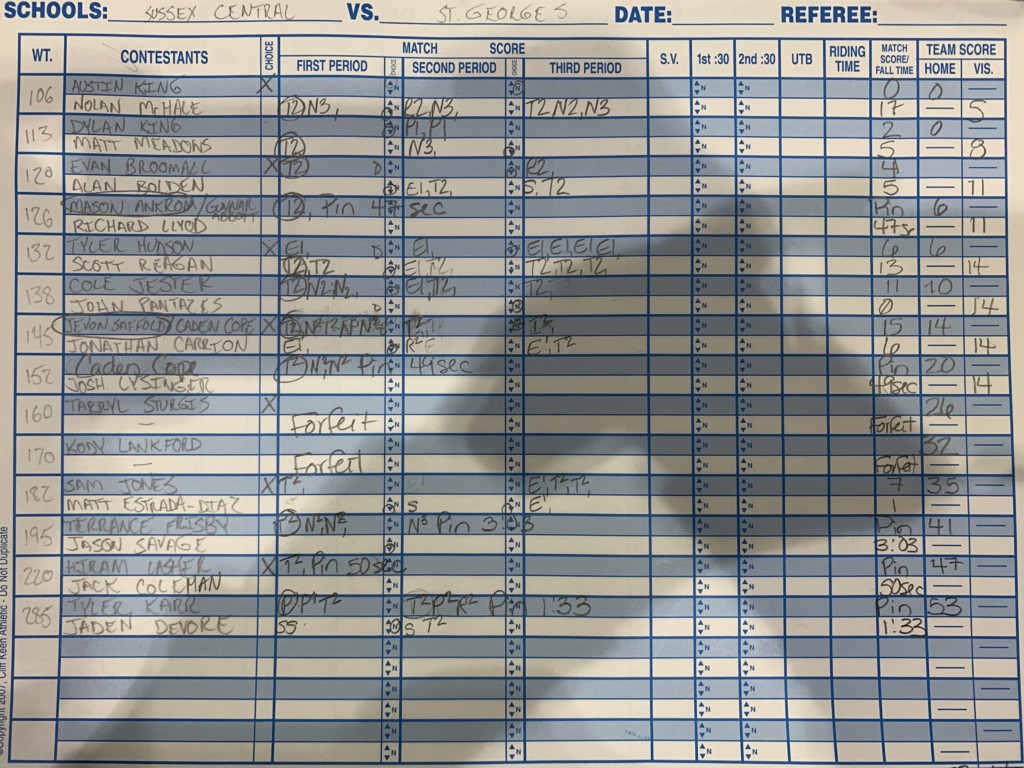 SCHOOLS: SUSSEX CENTRAL VS. ST. GEORGES DATE: REFEREE:
WT. CONTESTANTS CHOICE MATCH SCORE S.V. 1st :30 2nd :30 UTB RIDING TIME MATCH SCORE/ FALL TIME TEAM SCORE
FIRST PERIOD CHOICE SECOND PERIOD CHOICE THIRD PERIOD HOME VIS.
106 AUSTIN KING X 0 0 —
NOLAN McHALE T2 N3, R2, N3, T2 N2, N3 17 — 5
113 DYLAN KING P1, P1 2 0 —
MATT MEADOWS T2 N3, 5 — 8
120 EVAN BROOMALL X T2 D R2, 4 —
ALAN BOLDEN E1, T2, S, T2 5 — 11
126 MASON ANKROM / GUNNAR ABBOTT T2, Pin 47 sec Pin 6
RICHARD LLYOD 47s — 11
132 TYLER HUDSON X E1, D E1, E1, E1, E1, E1, 6 6 —
SCOTT REAGAN T2, T2 E1, T2, T2, T2, T2, 13 — 14
138 COLE JESTER T2 N2, N2, E1, T2, T2, 11 10
JOHN PANTAZES D 0 — 14
145 JEVON SAFFOLD / CADEN COPE X 15 14 —
JONATHAN CARRION E1, R2 E1 E1, T2 6 — 14
152 Caden Cope T2 N3, N2 Pin 49sec Pin 20 —
JOSH LYSINGER 49sec — 14
160 TARRYL STURGIS X 26 —
— Forfeit Forfeit —
170 KODY LANKFORD 32 —
— Forfeit Forfeit —
182 SAM JONES X T2, E1, T2, T2, 7 35 —
MATT ESTRADA-DIAZ S S E1, 1 —
195 TERRANCE FRISBY T2 N2 N2, N3 Pin 3:03 Pin 41 —
JASON SAVAGE 3:03 —
220 HIRAM LASHER X T2, Pin 50sec Pin 47 —
JACK COLEMAN 50sec —
285 TYLER KARR P P1 T2 T2 P2 R2 Pin 1:33 Pin 53 —
JADEN DEVORE SS S T2 1:33 —
©Copyright 2007, Cliff Keen Athletic - Do Not Duplicate